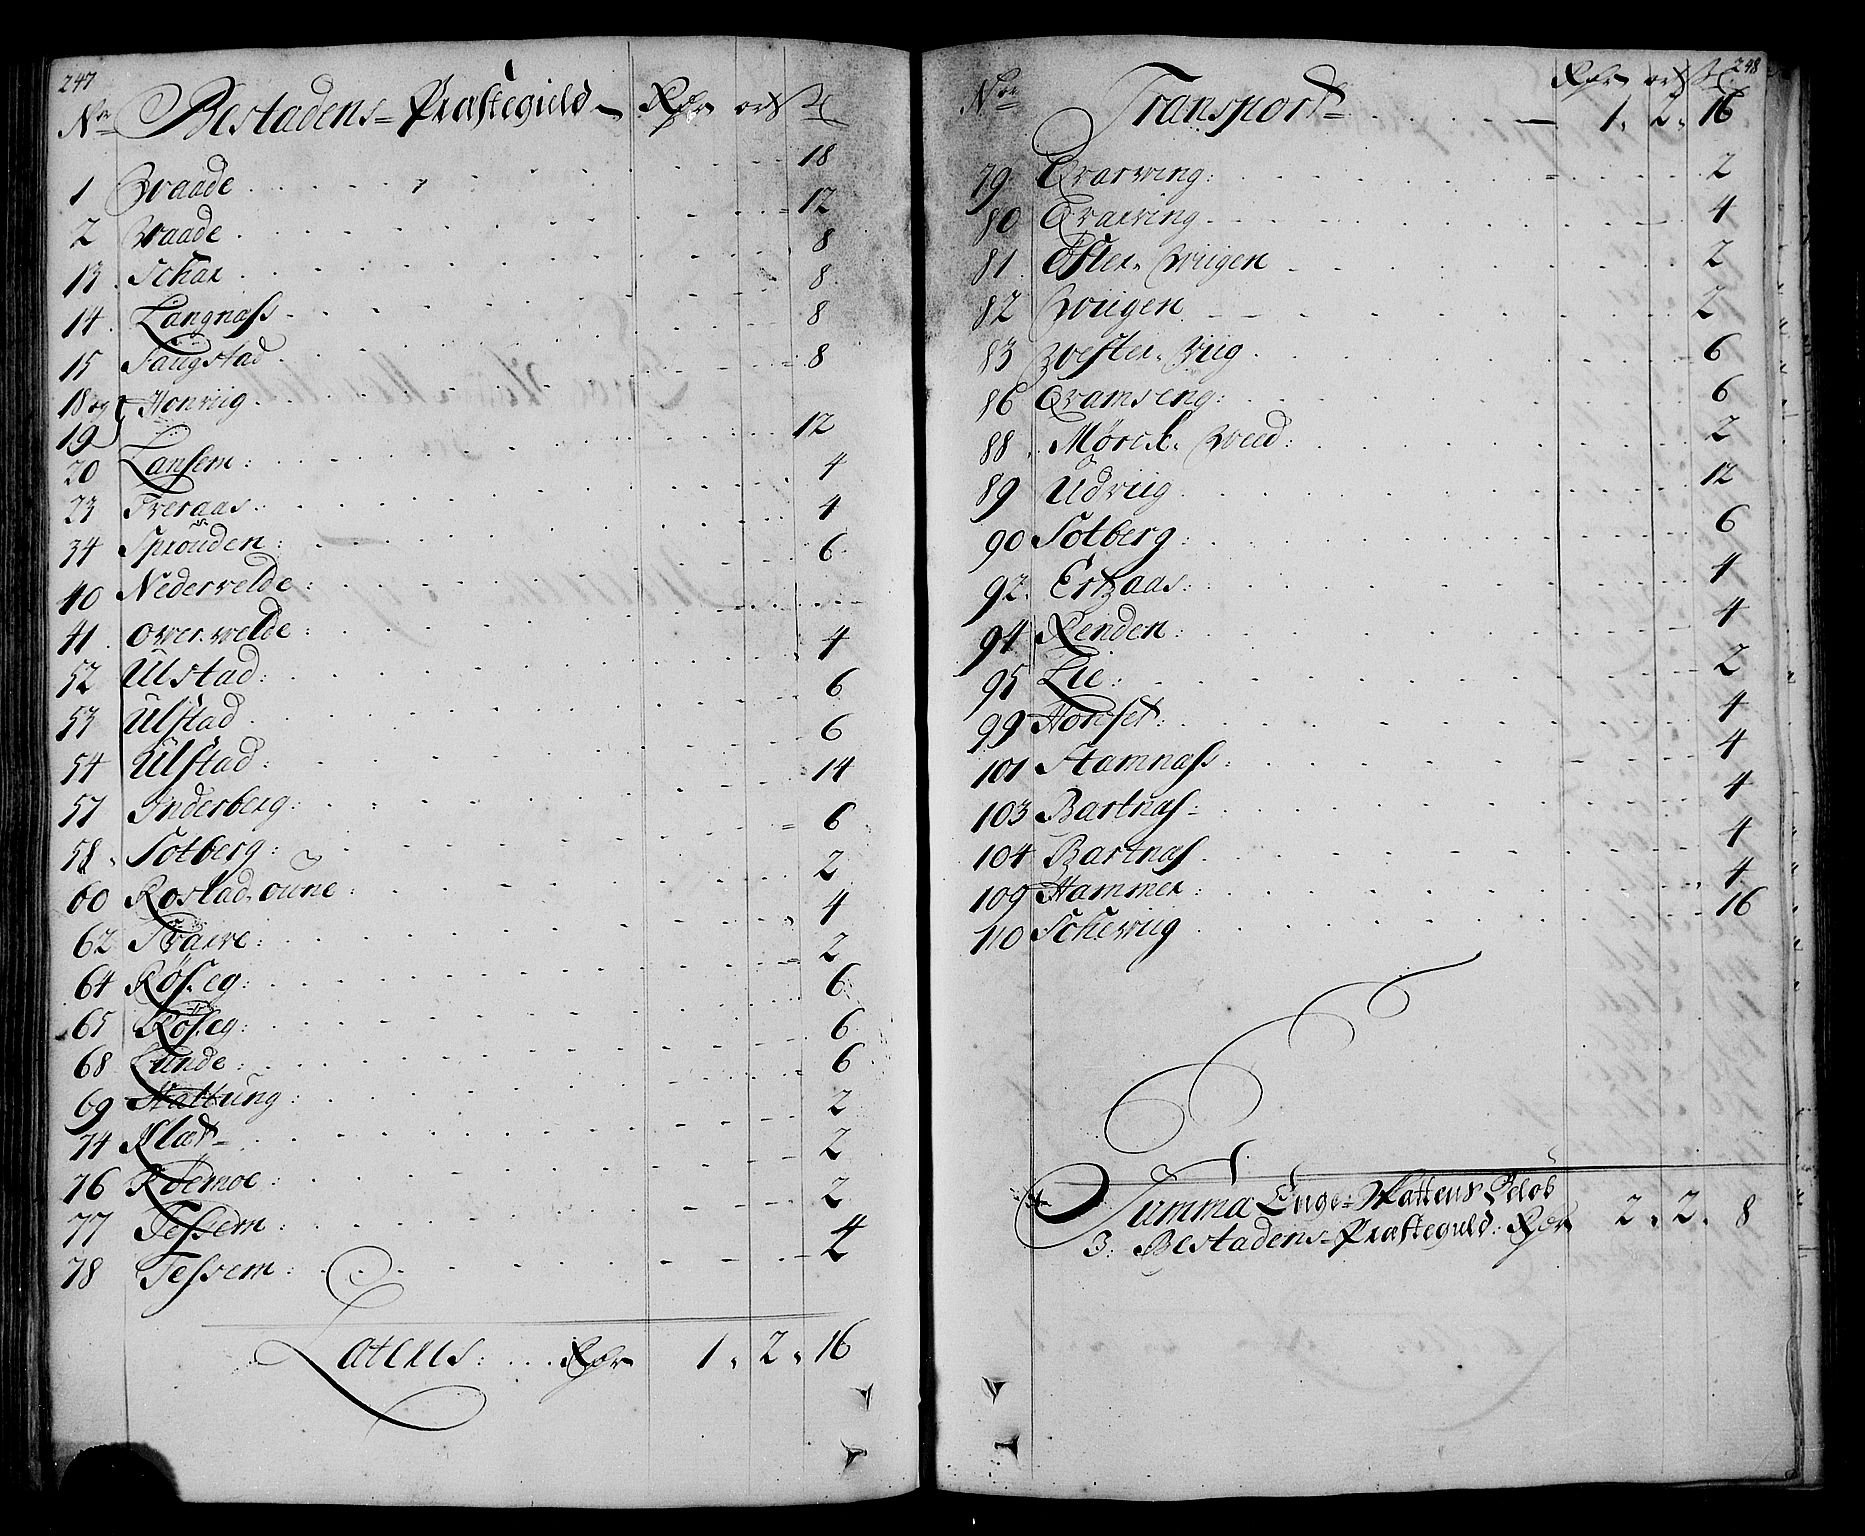 247
No Bestadens Præstegield Rdr ort ß
1 Waade 18
2 Waade 12
13 Schar 8
14 Langnass 8
15 Saugstad 8
18 og 19 Honviig 8
20 Lansem: 12
23 Treraas: 4
34 Sprouden: 4
40 Nedervelde: 6
41 Overvelde:
52 Ulstad: 4
53 Ulstad 6
54 Ulstad: 6
57 Inderberg: 14
58 Solberg: 6
60 Rostad oune: 2
62 4
64 Røseg: 2
65 Røseg: 6
68 Lunde: 6
69 Hattung: 6
74 Klat 2
76 Roemoe: 2
77 Tessem: 2
78 Tessem: 4
Laterus: Rdr 1 " 2 " 16
248
No Transport Rdr ort ß
1 " 2 " 16
79 Qvarving: 2
80 Qvarving 4
81 Øster Wiigen 2
82 Wiigen 2
83 Wester Wiig 6
86 Qvamseng: 6
88 Mørck Weed: 2
89 Udviig 12
90 Solberg: 6
92 Ertzaas: 4
94 Renden: 4
95 Lie: 2
99 Homset: 4
101 Stamnass 4
103 Bartnass 4
104 Bartnass 4
109 Hammer: 4
110 Scheviig 16
Summa Enge Skattens Beløb
3: Bestadens Præstegield: Rdr 2 " 2 " 8